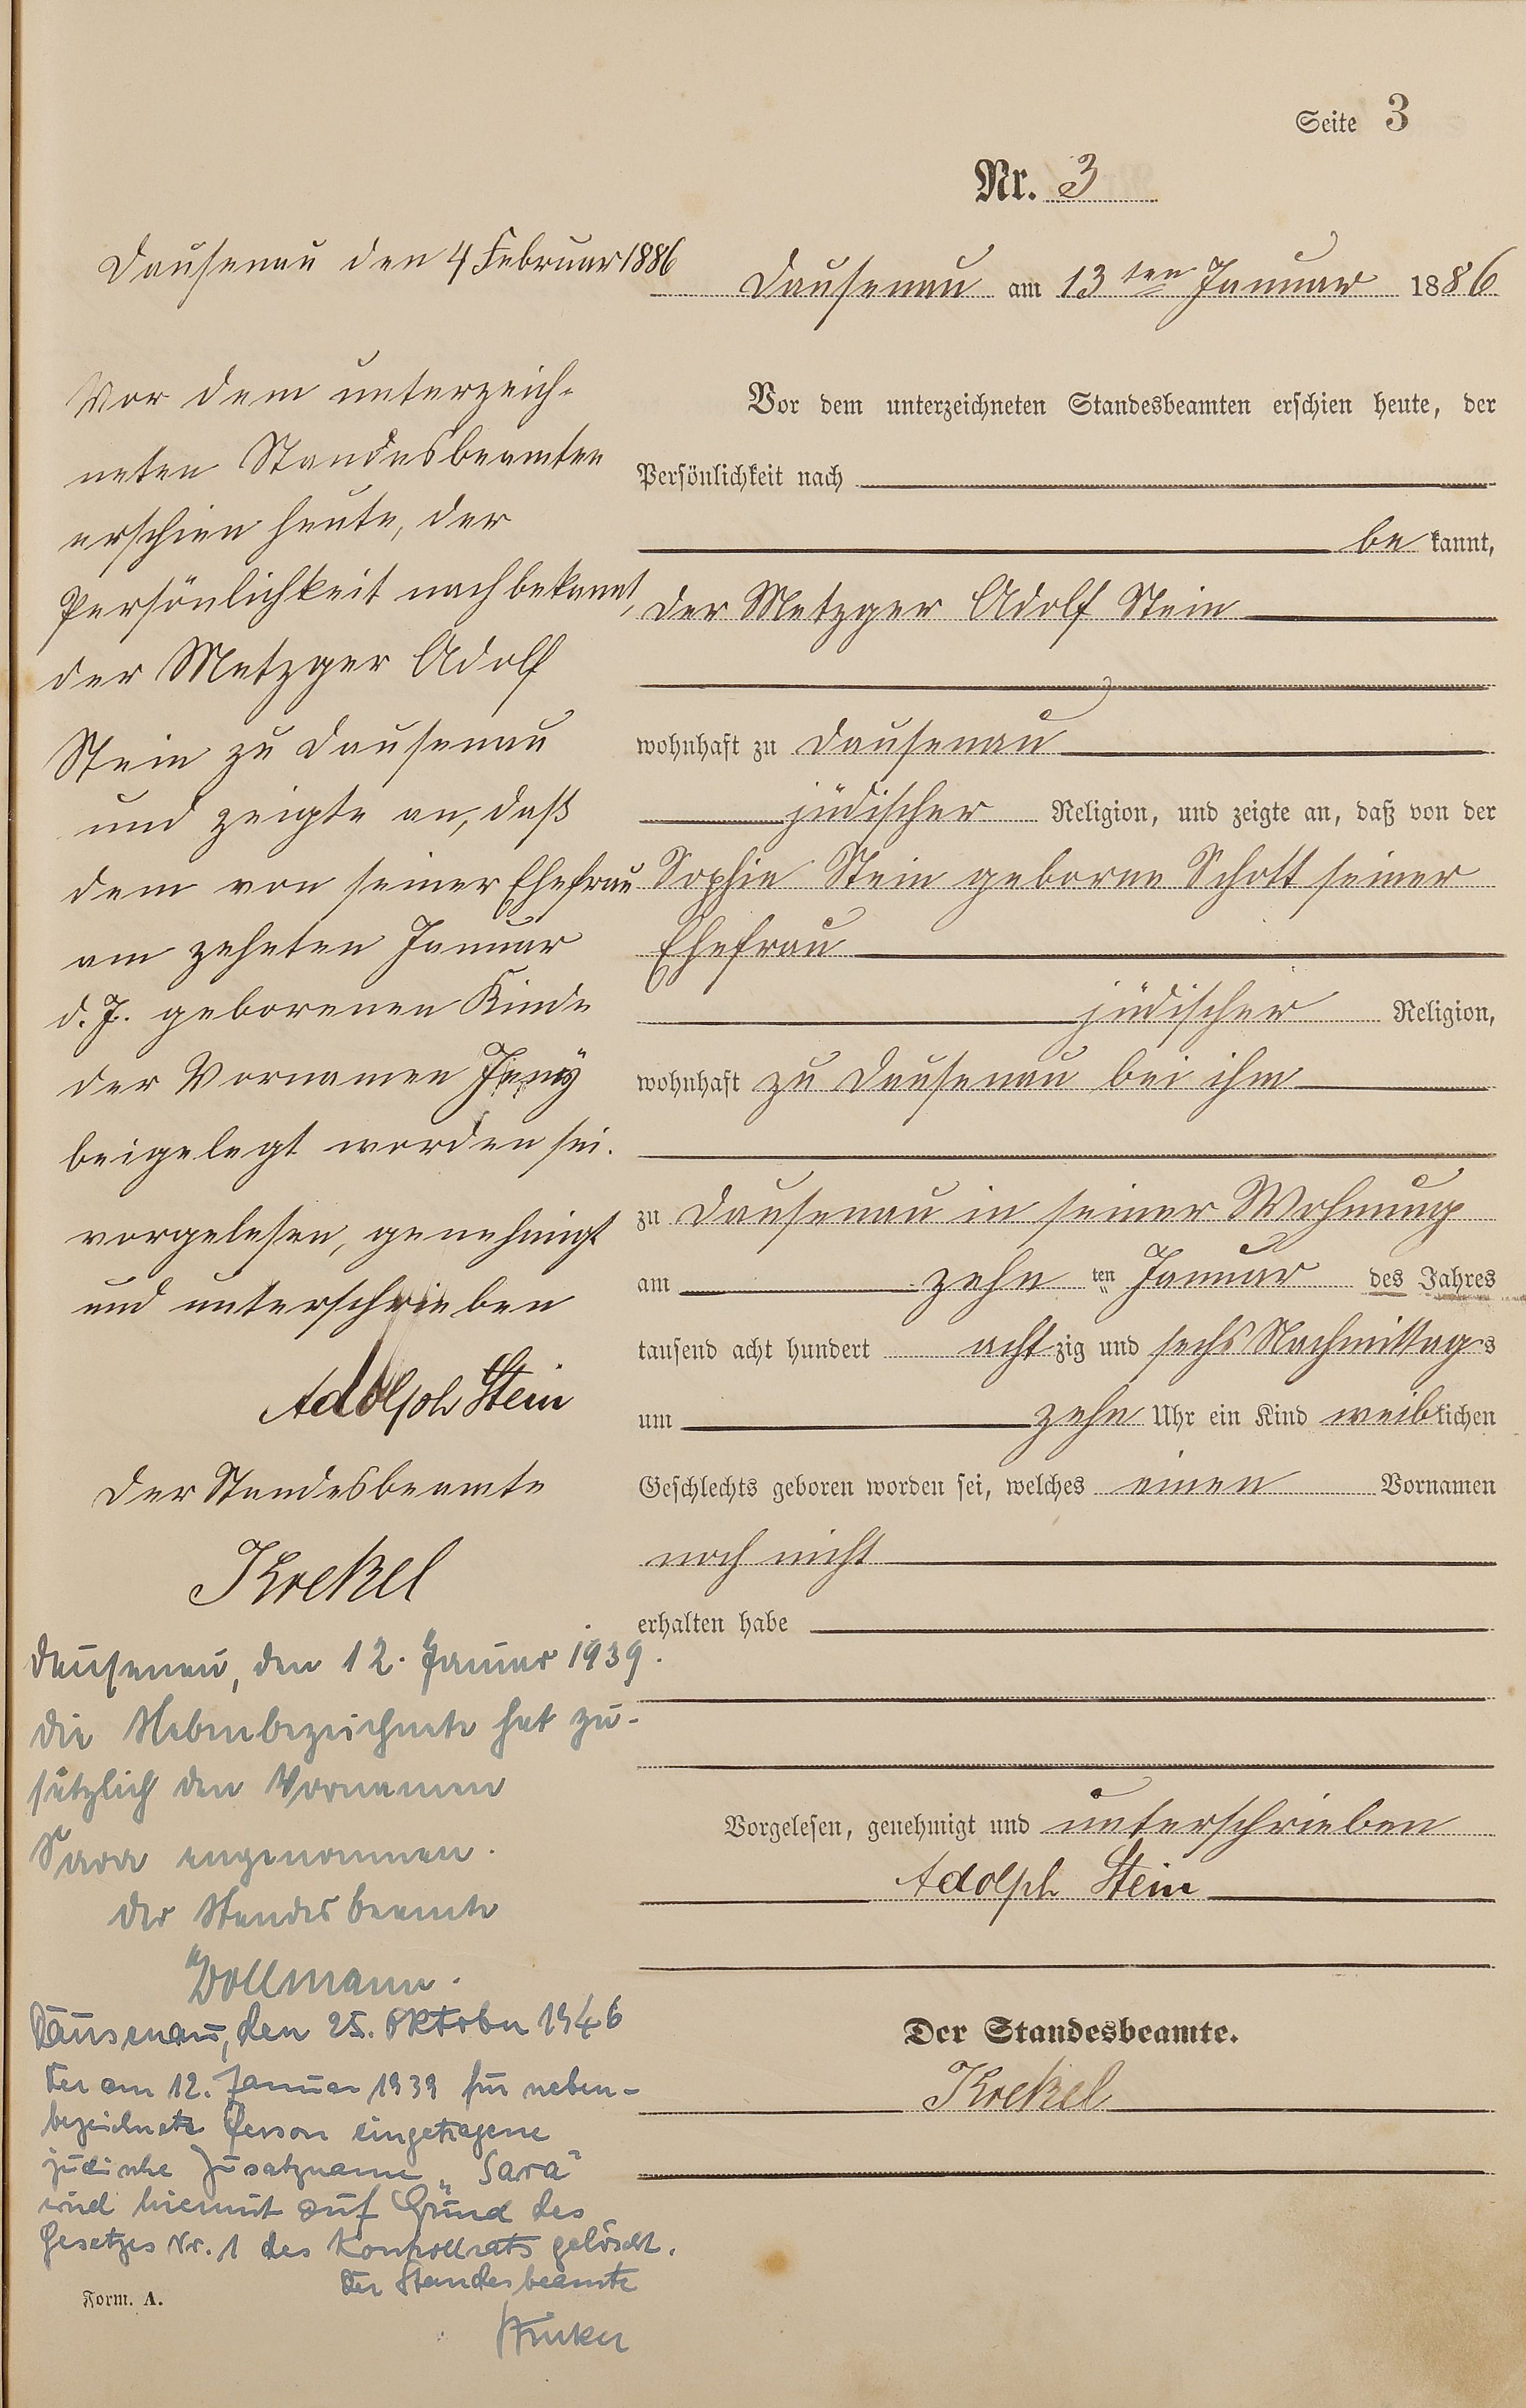 Seite 3
Nr. 3
Dausenau den 4 Februar 1886
Vor dem unterzeich-
neten Standesbeamten
erschien heute, der
Persönlichkeit nach bekannt,
der Metzger Adolf
Stein zu Dausenau
und zeigte an, daß
dem von seiner Ehefrau
am zehnten Januar
d. J. geborenen Kinde
der Vornamen Jenny
beigelegt worden sei.
vorgelesen, genehmigt
und unterschrieben
Adolph Stein
Der Standesbeamte
Krekel
Dausenau, den 12. Januar 1939.
Die Nebenbezeichnete hat zu-
sätzlich den Vornamen
Sara angenommen.
Der Standesbeamte
Dollmann.
Dausenau, den 25. Oktober 1946
Der am 12. Januar 1939 für neben-
bezeichnete Person eingetragene
jüdische Zusatzname "Sara"
wird hiermit auf Grund des
Gesetzes Nr. 1 des Kontrollrats gelöscht.
Der Standesbeamte
Form. A.
Dausenau am 13ten Januar 1886
Vor dem unterzeichneten Standesbeamten erschien heute, der
Persönlichkeit nach
bekannt,
der Metzger Adolf Stein
wohnhaft zu Dausenau
jüdischer Religion, und zeigte an, daß von der
Sophie Stein geborne Schott seiner
Ehefrau
jüdischer Religion,
wohnhaft zu Dausenau bei ihm
zu Dausenau in seiner Wohnung
am zehn ten Januar des Jahres
tausend acht hundert achtzig und sechs Nachmittags
um zehn Uhr ein Kind weiblichen
Geschlechts geboren worden sei, welches einen Vornamen
noch nicht
erhalten habe
Vorgelesen, genehmigt und unterschrieben
Adolph Stein
Der Standesbeamte.
Krekel